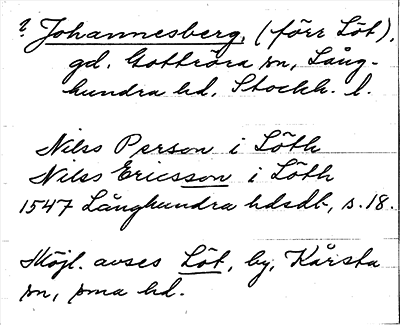 ? Johannesberg, (förr Löt),
gd. Gottröra sn, Lång-
hundra hd, Stockh. l.
Nils Person i Löth
Nils Ericsson i Löth
1547 Långhundra hdsdb, s. 18.
Möjl. avses Löt, by, Kårsta
sn, sma hd.